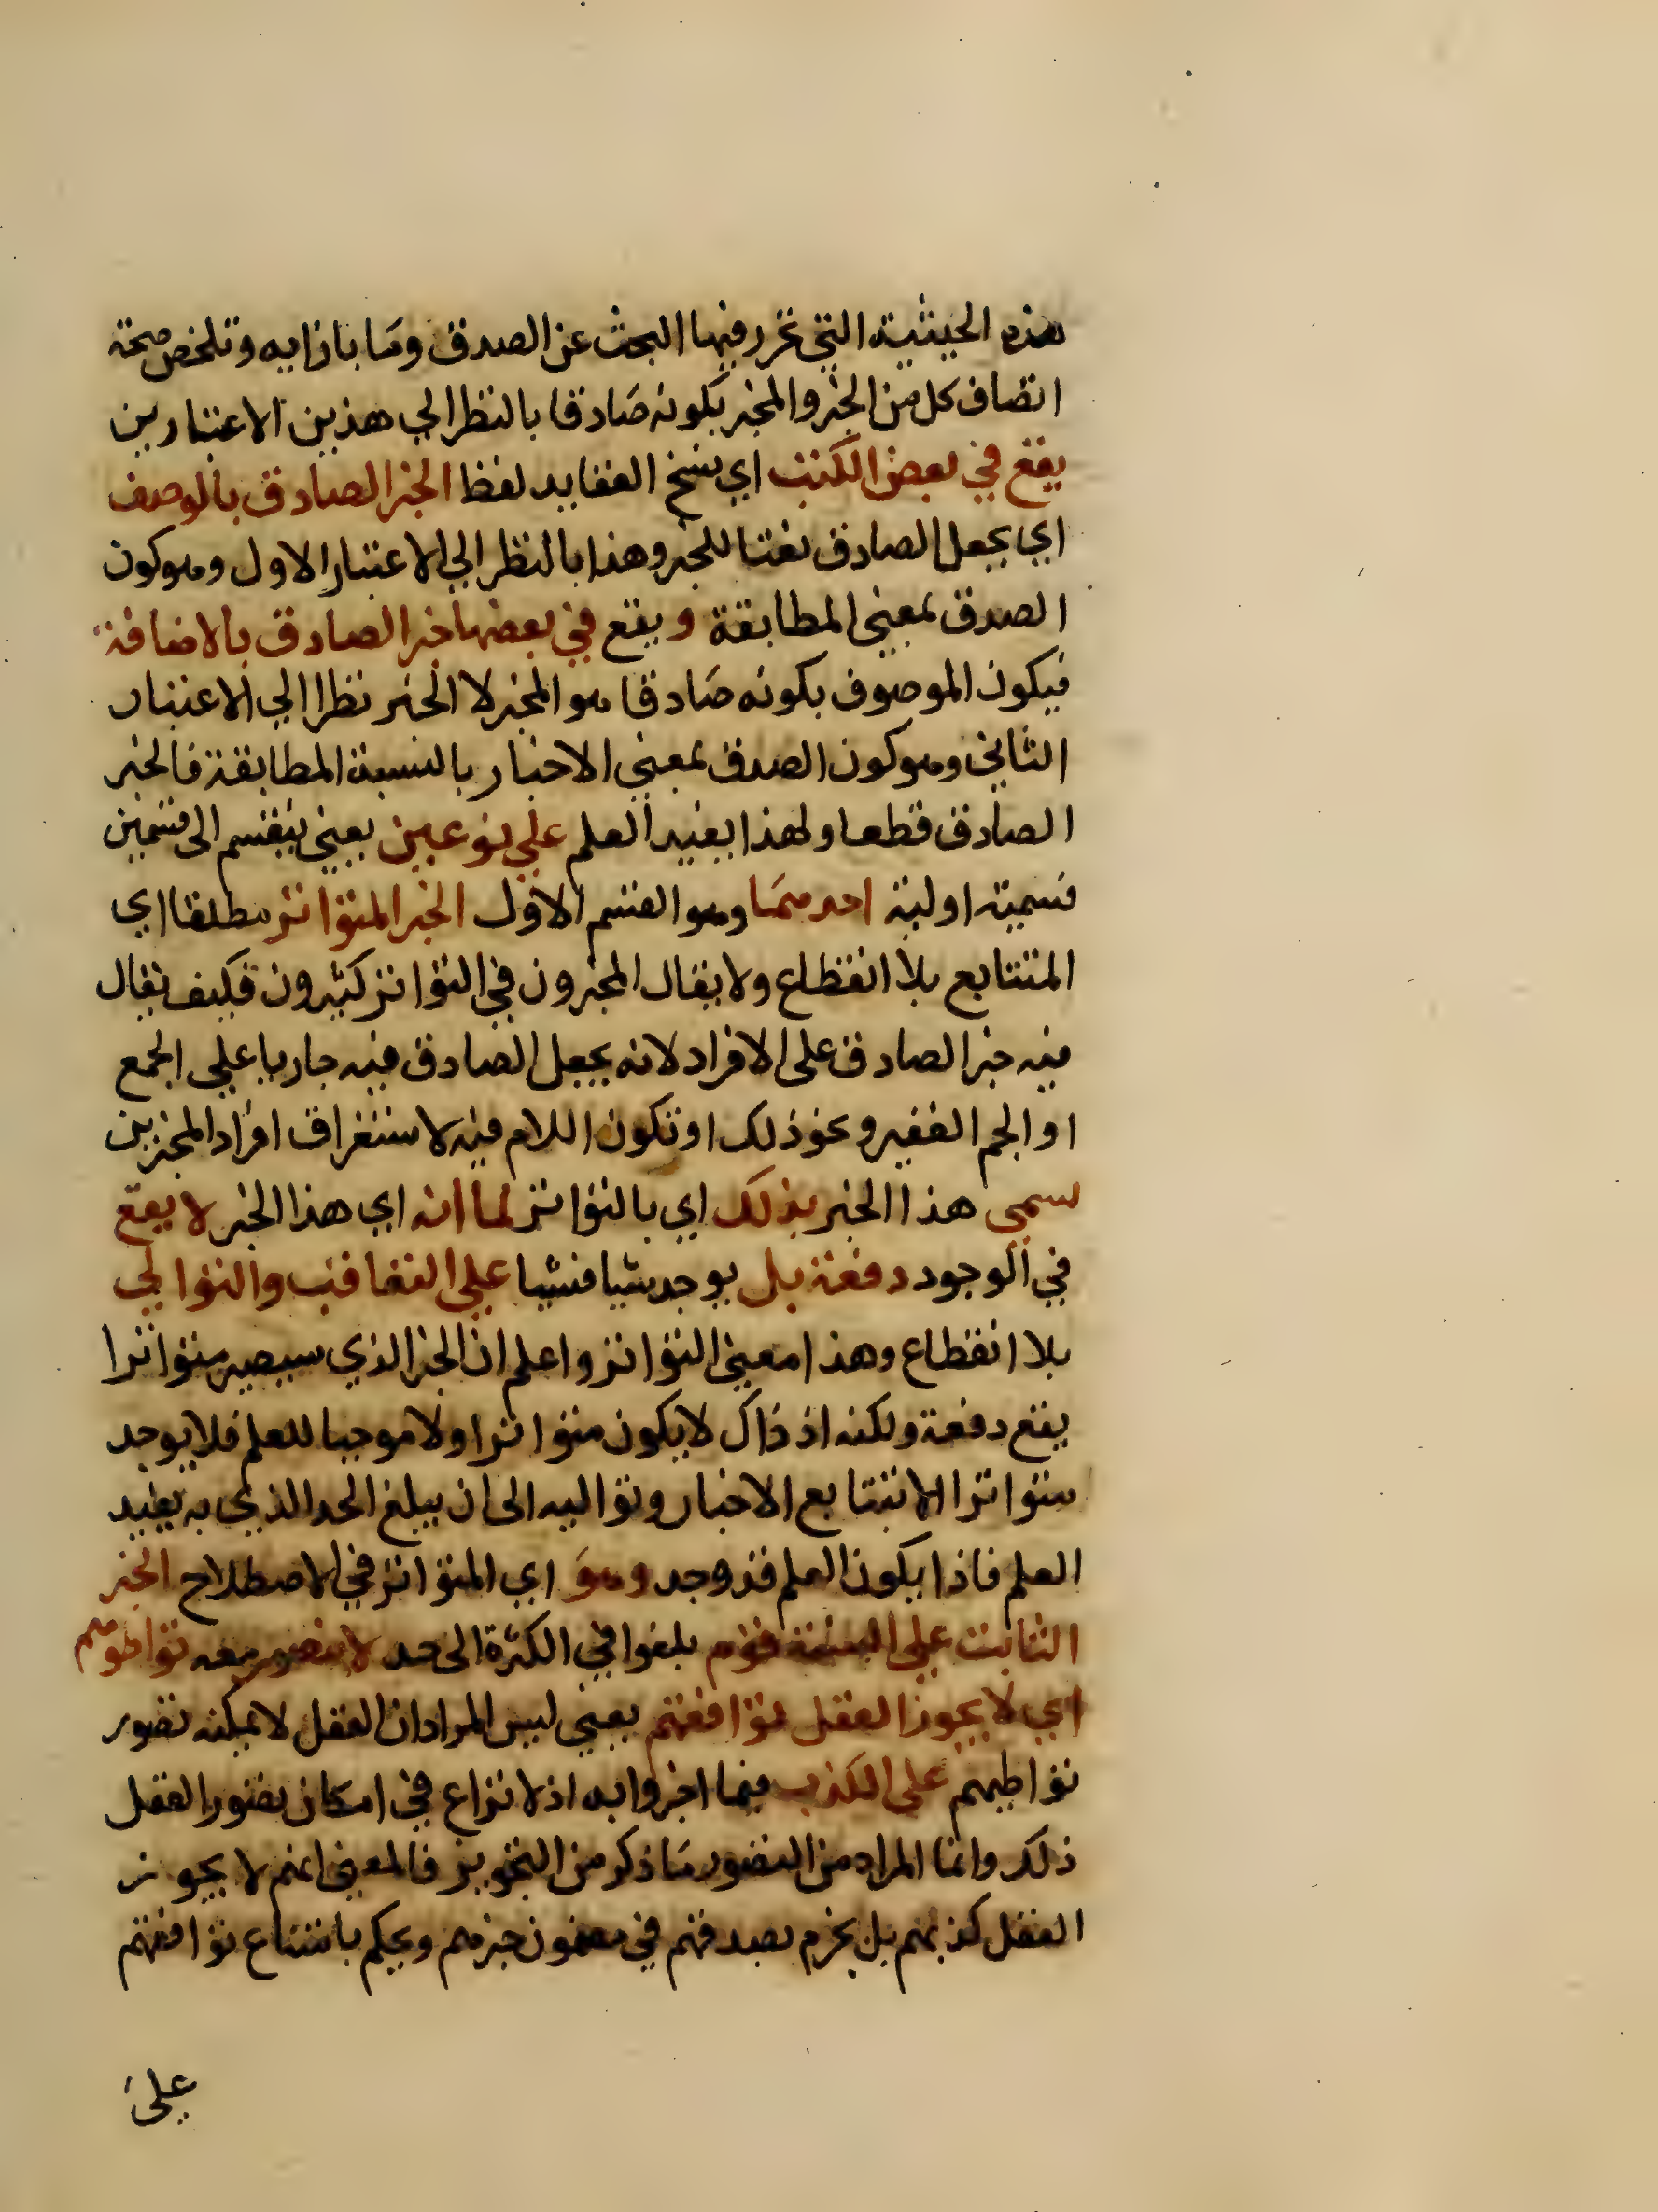 هذه الحيثية التي تحرر فيها البحث عن الصدق وما بازايه وتلخص صحة
اتصاف كل من الخبر والمخبر بكونه صادقا بالنظر الي هذين الاعتبارين
يقع في بعض الكتب اي نسخ العقايد لفظ الخبر الصادق بالوصف
اي بجعل الصادق نعتا للخبر وهذا بالنظر الي الاعتبار الاول وهو كون
الصدق بمعني المطابقة ويقع في بعضها خبر الصادق بالاضافة
فيكون الموصوف بكونه صادقا هو المخبر لا الخبر نظرا الي الاعتبار
الثاني وهو كون الصدق بمعني الاخبار بالنسبة المطابقة فالخبر
الصادق قطعا ولهذا يفيد العلم علي نوعين يعني ينقسم الى قسمين
قسمة اولية احدهما وهو القسم الاول الخبر المتواتر مطلقا اي
المتتابع بلا انقطاع ولا يقال المخبرون في التواتر كثيرون فكيف يقال
فيه خبر الصادق على الافراد لانه بجعل الصادق فيه جاريا علي الجمع
او الجم الغفير ونحو ذلك او تكون اللام فيه لاستغراق افراد المخبرين
سمي هذا الخبر بذلك اي بالتواتر لما انه اي هذا الخبر لا يقع
في الوجود دفعة بل يوجد شيا فشيا علي التعاقب والتوالي
بلا انقطاع وهذا معني التواتر واعلم ان الخبر الذي سيصير متواترا
يقع دفعة ولكنه اذ ذاك لا يكون متواترا ولا موجبا للعلم فلا يوجد
متواترا الا بتتابع الاخبار وتواليه الى ان يبلغ الحد الذي به يفيد
العلم فاذا يكون العلم قد وجد وهو اي المتواتر في الاصطلاح الخبر
الثابت علي السنة قوم بلغوا في الكثرة الى حد لا يتصور معه تواطوهم
اي لا يجوز العقل توافقهم يعني ليس المراد ان العقل لا يمكنه تصور
تواطيهم علي الكذب فيما اخبروا به اذ لا نزاع في امكان تصور العقل
ذلك وانما المراد من التصور ما ذكر من التجويز فالمعني انهم لا يجوز
العقل كذبهم بل يجزم بصدقهم في مضمون خبرهم ويحكم بامتناع توافقهم
علي